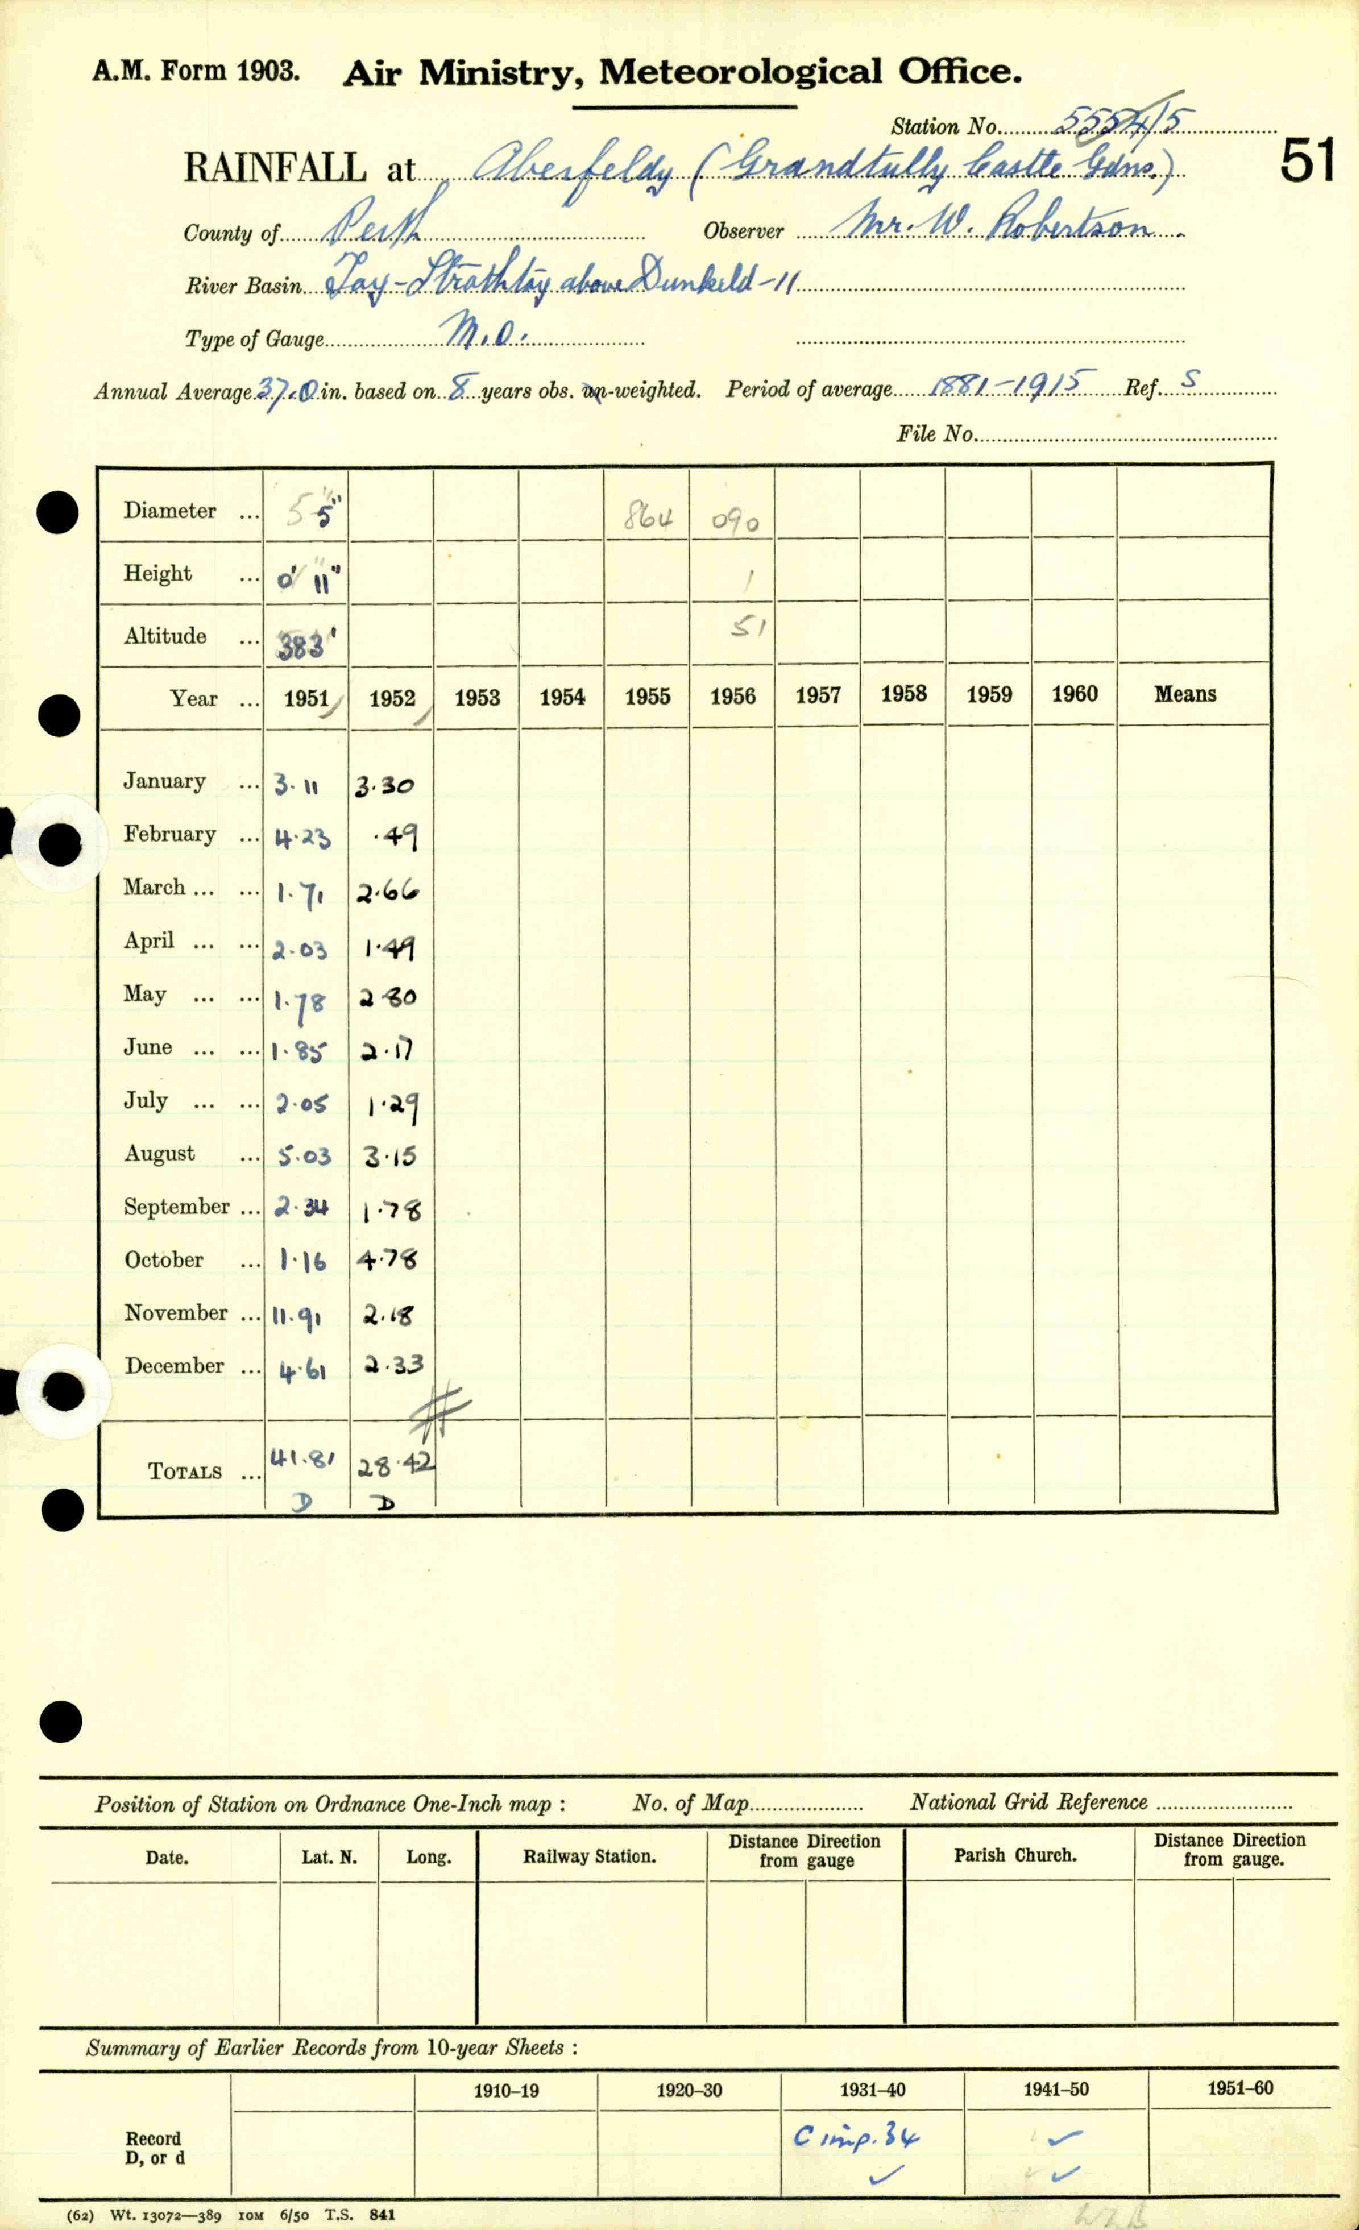 A.M. Form 1903. Air Ministry, Meteorological Office.
Station No. 5554/5
51
RAINFALL at Aberfeldy (Grandtully Castle Gdns.)
County of Perth Observer Mr. W. Robertson.
River Basin Tay - Strathtay above Dunkeld - 11
Type of Gauge M.O.
Annual Average 37.0 in. based on 8 years obs. un-weighted. Period of average 1881-1915 Ref. S
File No.
Diameter ... 5" 5" 864 090
Height ... 0' 11" 1
Altitude ... 383' 51
Year ... 1951 1952 1953 1954 1955 1956 1957 1958 1959 1960 Means
January ... 3.11 3.30
February ... 4.23 .49
March ... ... 1.71 2.66
April ... ... 2.03 1.49
May ... ... 1.78 2.80
June ... ... 1.85 2.17
July ... ... 2.05 1.29
August ... 5.03 3.15
September ... 2.34 1.78
October ... 1.16 4.78
November ... 11.91 2.18
December ... 4.61 2.33
TOTALS ... 41.81 28.42
D D
Position of Station on Ordnance One-Inch map : No. of Map National Grid Reference
Date. Lat. N. Long. Railway Station. Distance Direction from gauge Parish Church. Distance Direction from gauge.
Summary of Earlier Records from 10-year Sheets :
1910–19 1920–30 1931–40 1941–50 1951–60
Record D, or d C imp. 34 ✓ ✓ ✓
(62) Wt. 13072—389 10M 6/50 T.S. 841